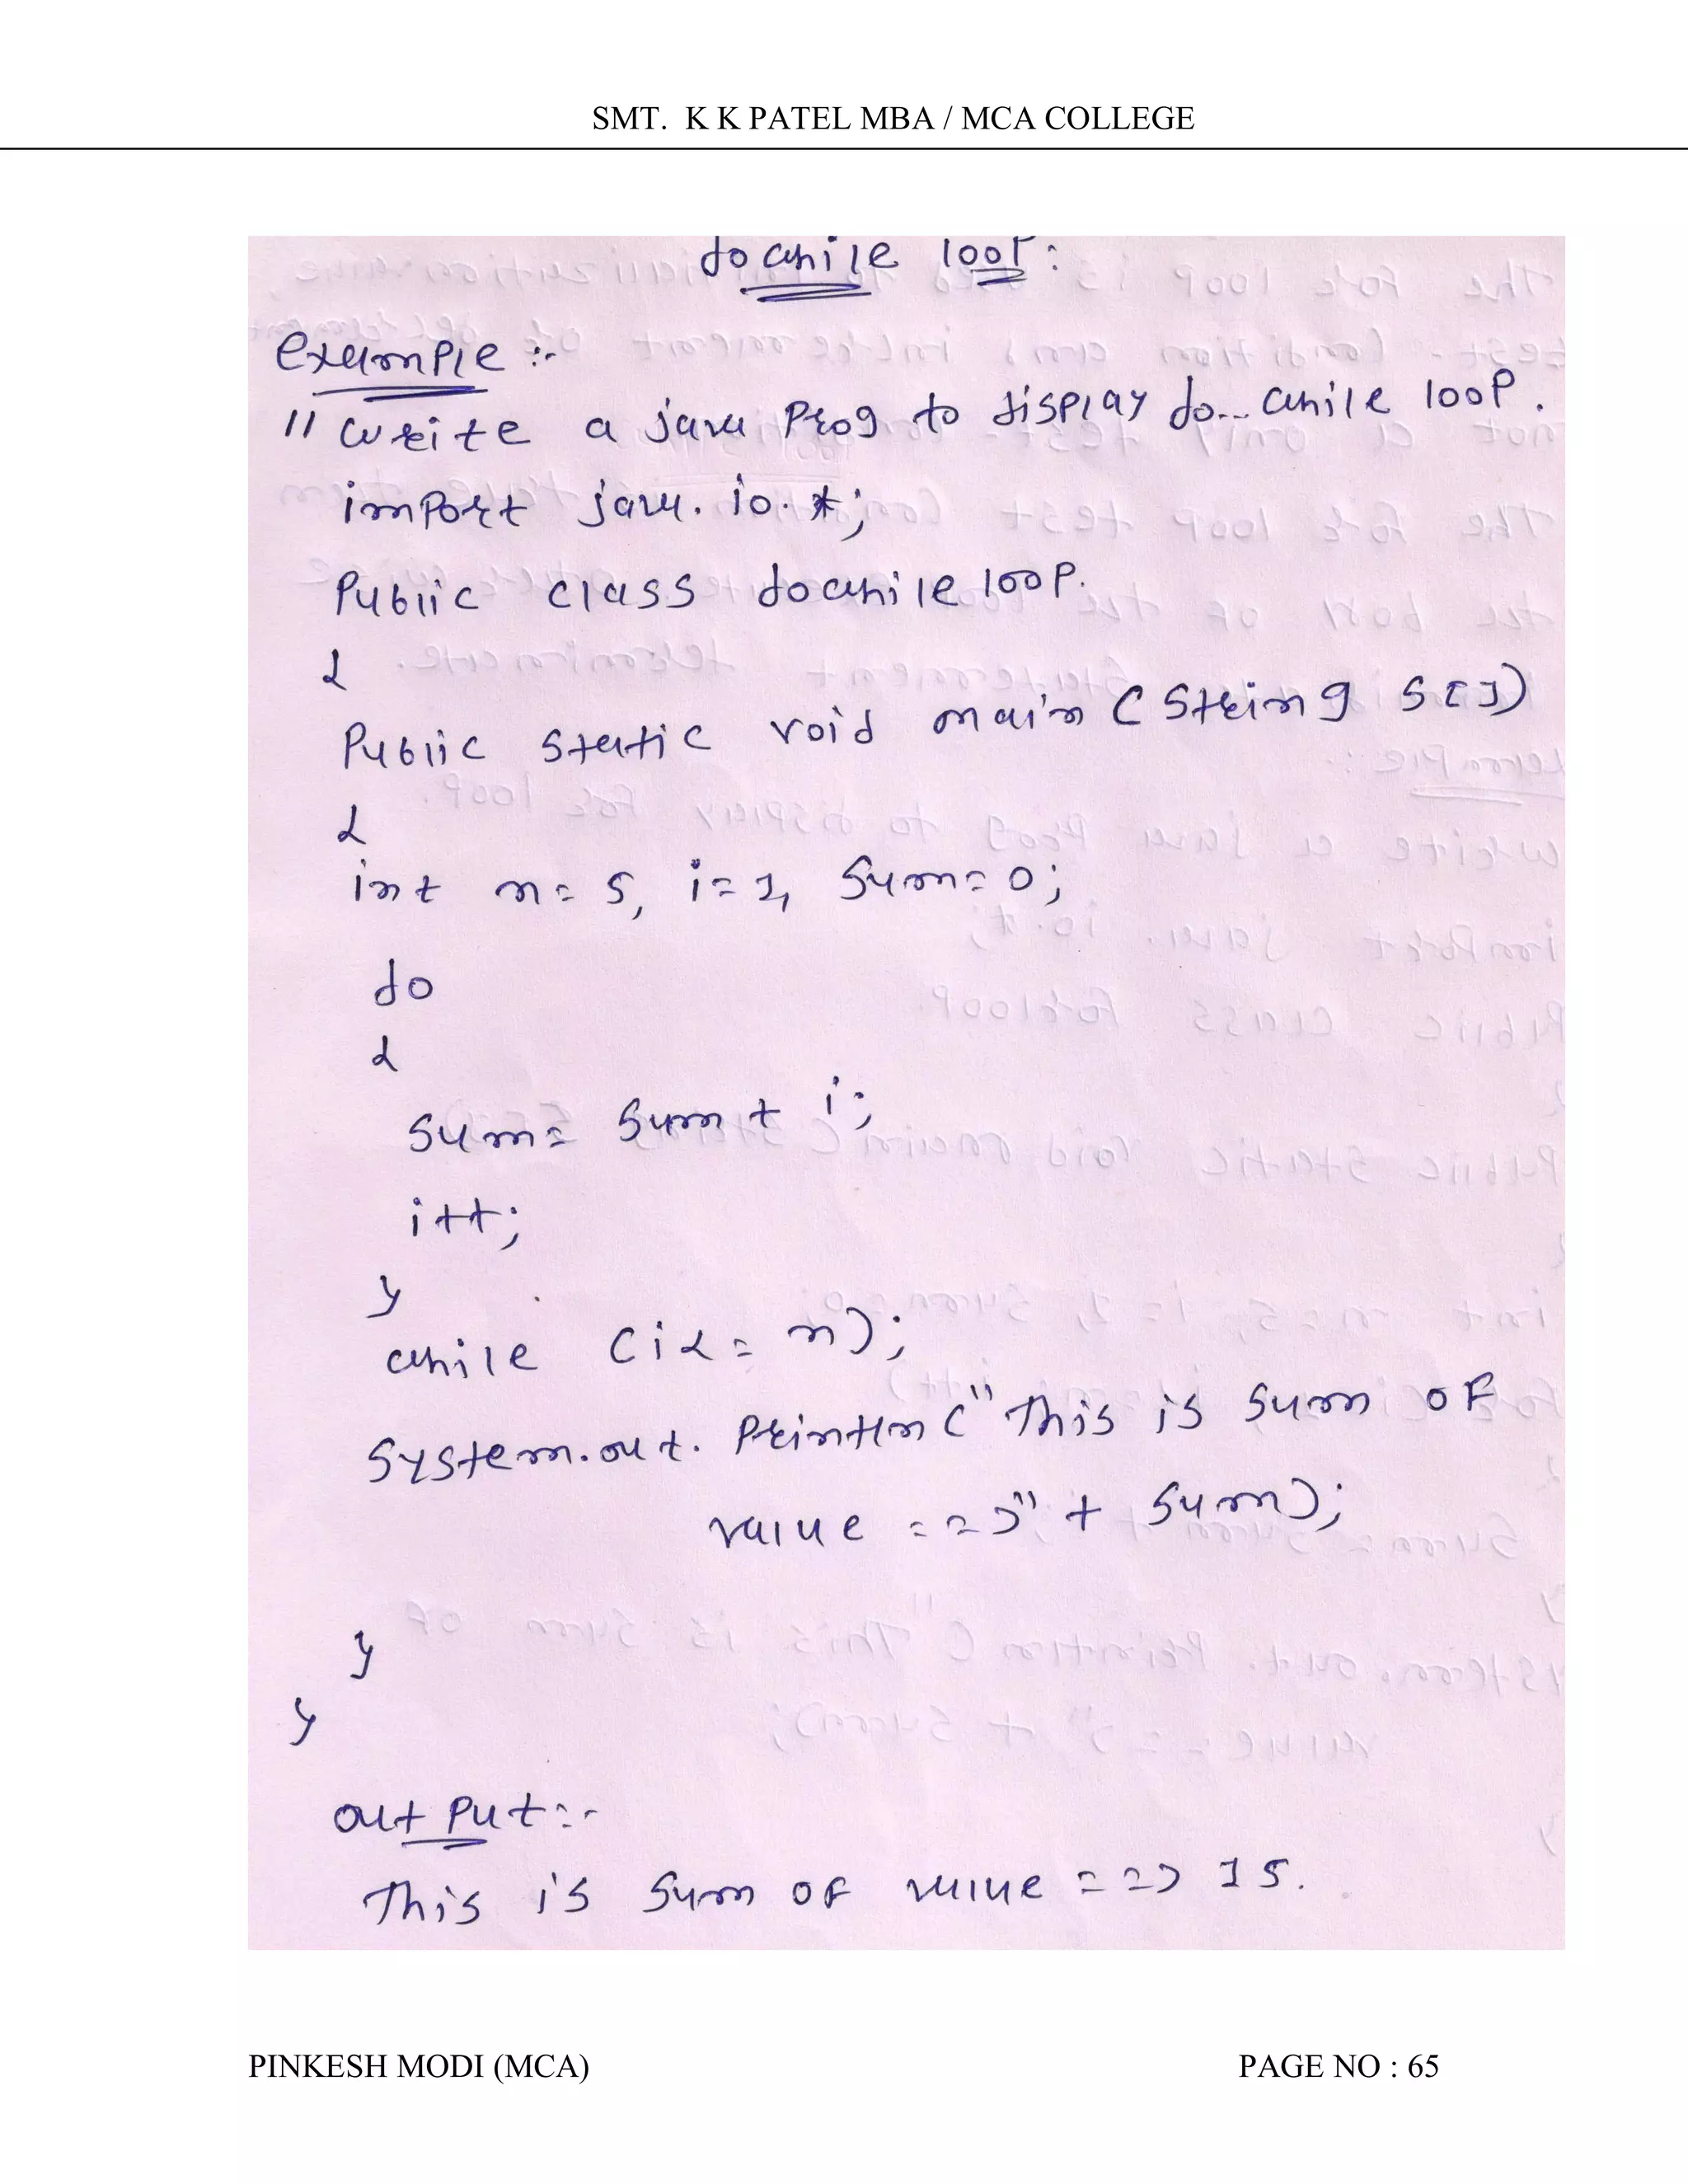 SMT. K K PATEL MBA / MCA COLLEGE
dowhile loop:
Example :-
// write a java Prog to display do... while loop.
import java.io.*;
Public class dowhileloop.
{
Public static void main ( String s[])
{
int n= 5, i=1, Sum= 0;
do
{
Sum= Sum + i;
i++;
}
while (i<= n);
System.out.Println ("This is Sum OF
value ==>" + Sum);
}
}
output:-
This is Sum OF value ==> 15.
PINKESH MODI (MCA) PAGE NO : 65